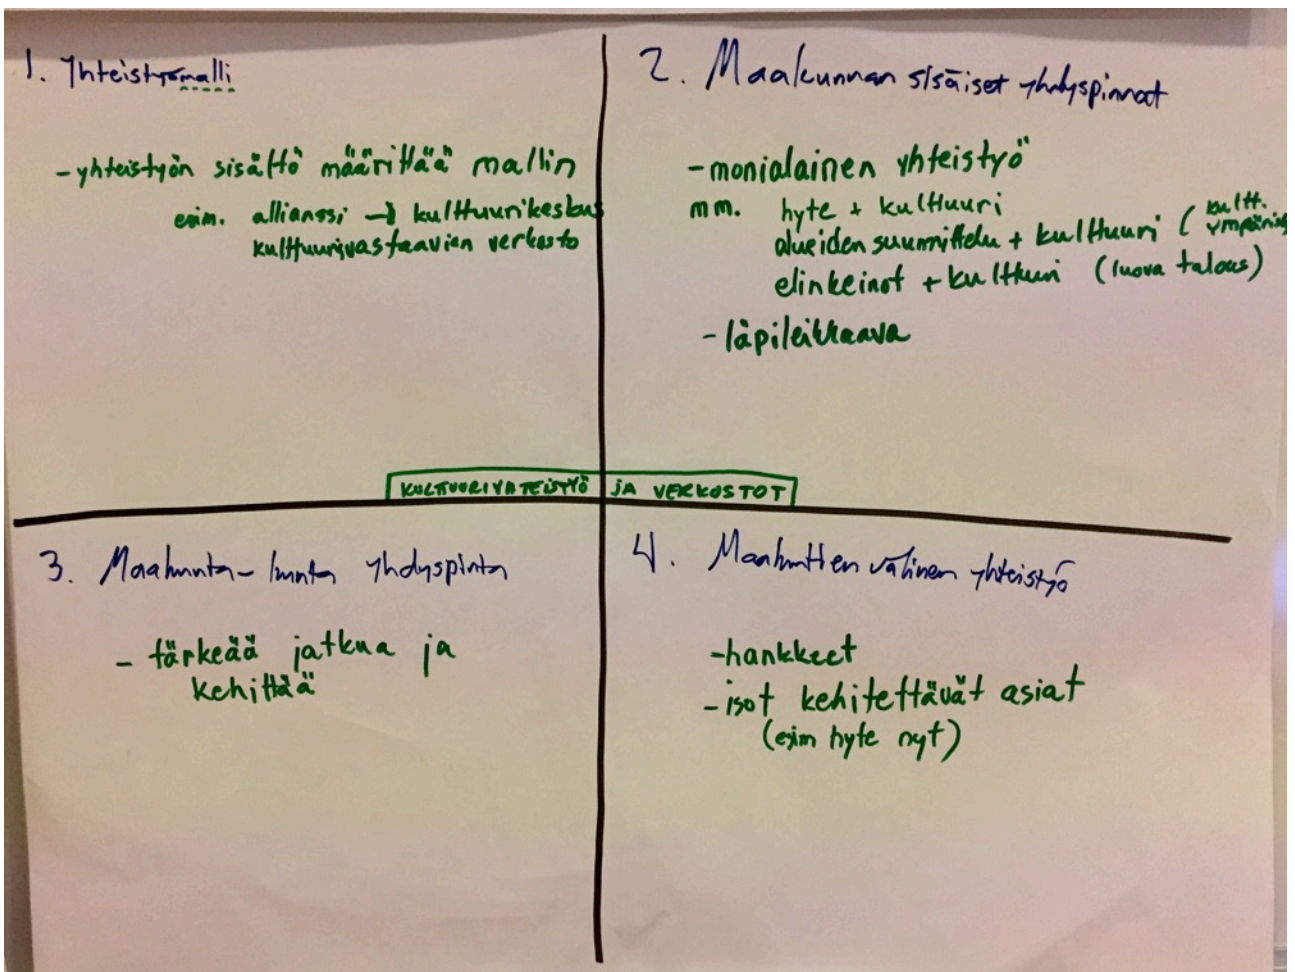 1. Yhteistyömalli
-yhteistyön sisältö määrittää mallin
esim. allianssi → kulttuurikeskus
kulttuurivastaavien verkosto
2. Maakunnan sisäiset yhdyspinnat
-monialainen yhteistyö
mm. hyte + kulttuuri
alueiden suunnittelu + kulttuuri (kultt.
elinkeinot + kulttuuri (luova talous)
-läpileikkaava
KULTTUURIYHTEISTYÖ JA VERKOSTOT
3. Maakunta-kunta yhdyspinta
- tärkeää jatkua ja
kehittää
4. Maakuntien välinen yhteistyö
-hankkeet
-isot kehitettävät asiat
(esim hyte nyt)